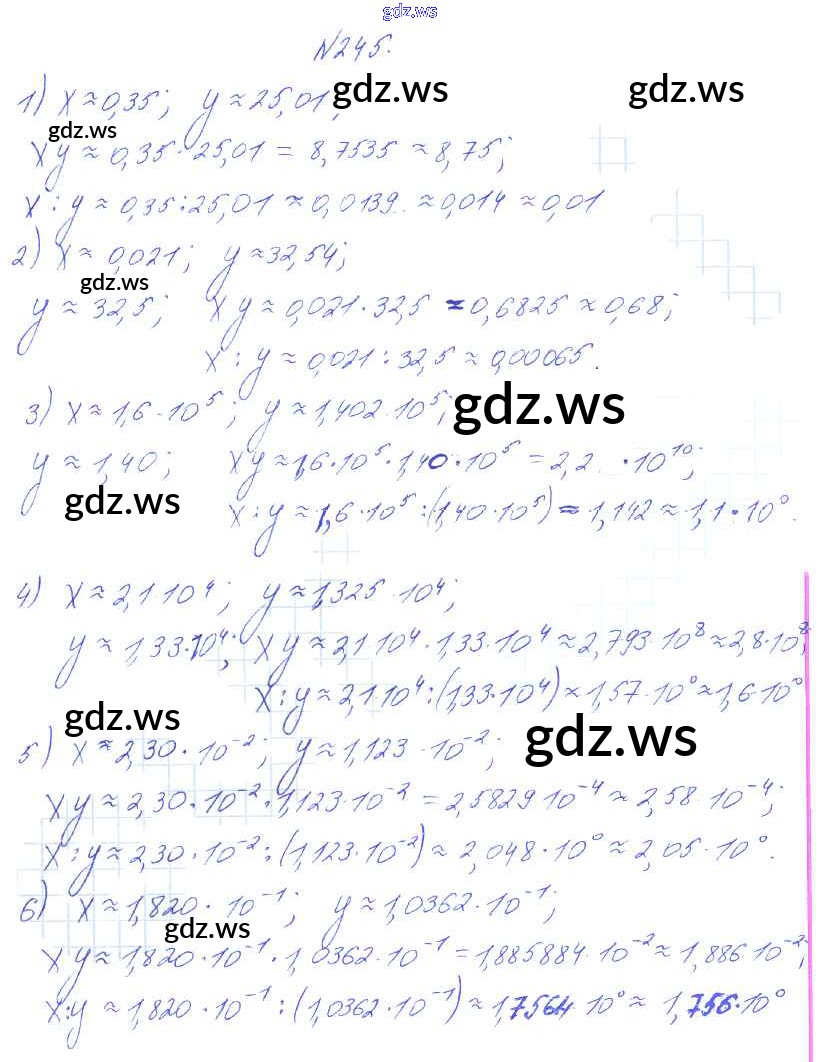 gdz.ws
N245.
1) x ≈ 0,35; y ≈ 25,01; gdz.ws gdz.ws
gdz.ws
xy ≈ 0,35 · 25,01 = 8,7535 ≈ 8,75;
x : y ≈ 0,35 : 25,01 ≈ 0,0139.. ≈ 0,014 ≈ 0,01
2) x ≈ 0,021; y ≈ 32,54;
gdz.ws
y ≈ 32,5; xy ≈ 0,021 · 32,5 = 0,6825 ≈ 0,68;
x : y ≈ 0,021 : 32,5 ≈ 0,00065.
3) x ≈ 1,6 · 10⁵; y ≈ 1,402 · 10⁵; gdz.ws
y ≈ 1,40; xy ≈ 1,6 · 10⁵ · 1,40 · 10⁵ = 2,2.. · 10¹⁰;
gdz.ws
x : y ≈ 1,6 · 10⁵ : (1,40 · 10⁵) = 1,142 ≈ 1,1 · 10⁰.
4) x ≈ 2,1 10⁴; y ≈ 1,325 · 10⁴;
y ≈ 1,33 · 10⁴; xy ≈ 2,1 10⁴ · 1,33 · 10⁴ ≈ 2,793 · 10⁸ ≈ 2,8 · 10⁸;
x : y ≈ 2,1 10⁴ : (1,33 · 10⁴) ≈ 1,57 · 10⁰ ≈ 1,6 · 10⁰
gdz.ws gdz.ws
5) x ≈ 2,30 · 10⁻²; y ≈ 1,123 · 10⁻²;
xy ≈ 2,30 · 10⁻² · 1,123 · 10⁻² = 2,5829 10⁻⁴ ≈ 2,58 · 10⁻⁴;
x : y ≈ 2,30 · 10⁻² : (1,123 · 10⁻²) ≈ 2,048 · 10⁰ ≈ 2,05 · 10⁰.
6) x ≈ 1,820 · 10⁻¹; y ≈ 1,0362 · 10⁻¹;
gdz.ws
xy ≈ 1,820 · 10⁻¹ · 1,0362 · 10⁻¹ = 1,885884 · 10⁻² ≈ 1,886 10⁻²;
x : y ≈ 1,820 · 10⁻¹ : (1,0362 · 10⁻¹) ≈ 1,7564 · 10⁰ ≈ 1,756 · 10⁰